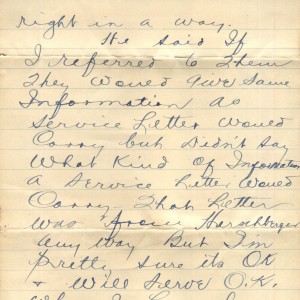 right in a way.
He said If
I referred to Them
They Would Give Same
Information As
Service Letter Would
Carry but Didn't Say
What Kind Of Information
A Service Letter Would
Carry. That Letter
Was from Hershberger
Any Way But I'm
Pretty Sure its OK
& Will Serve O.K.